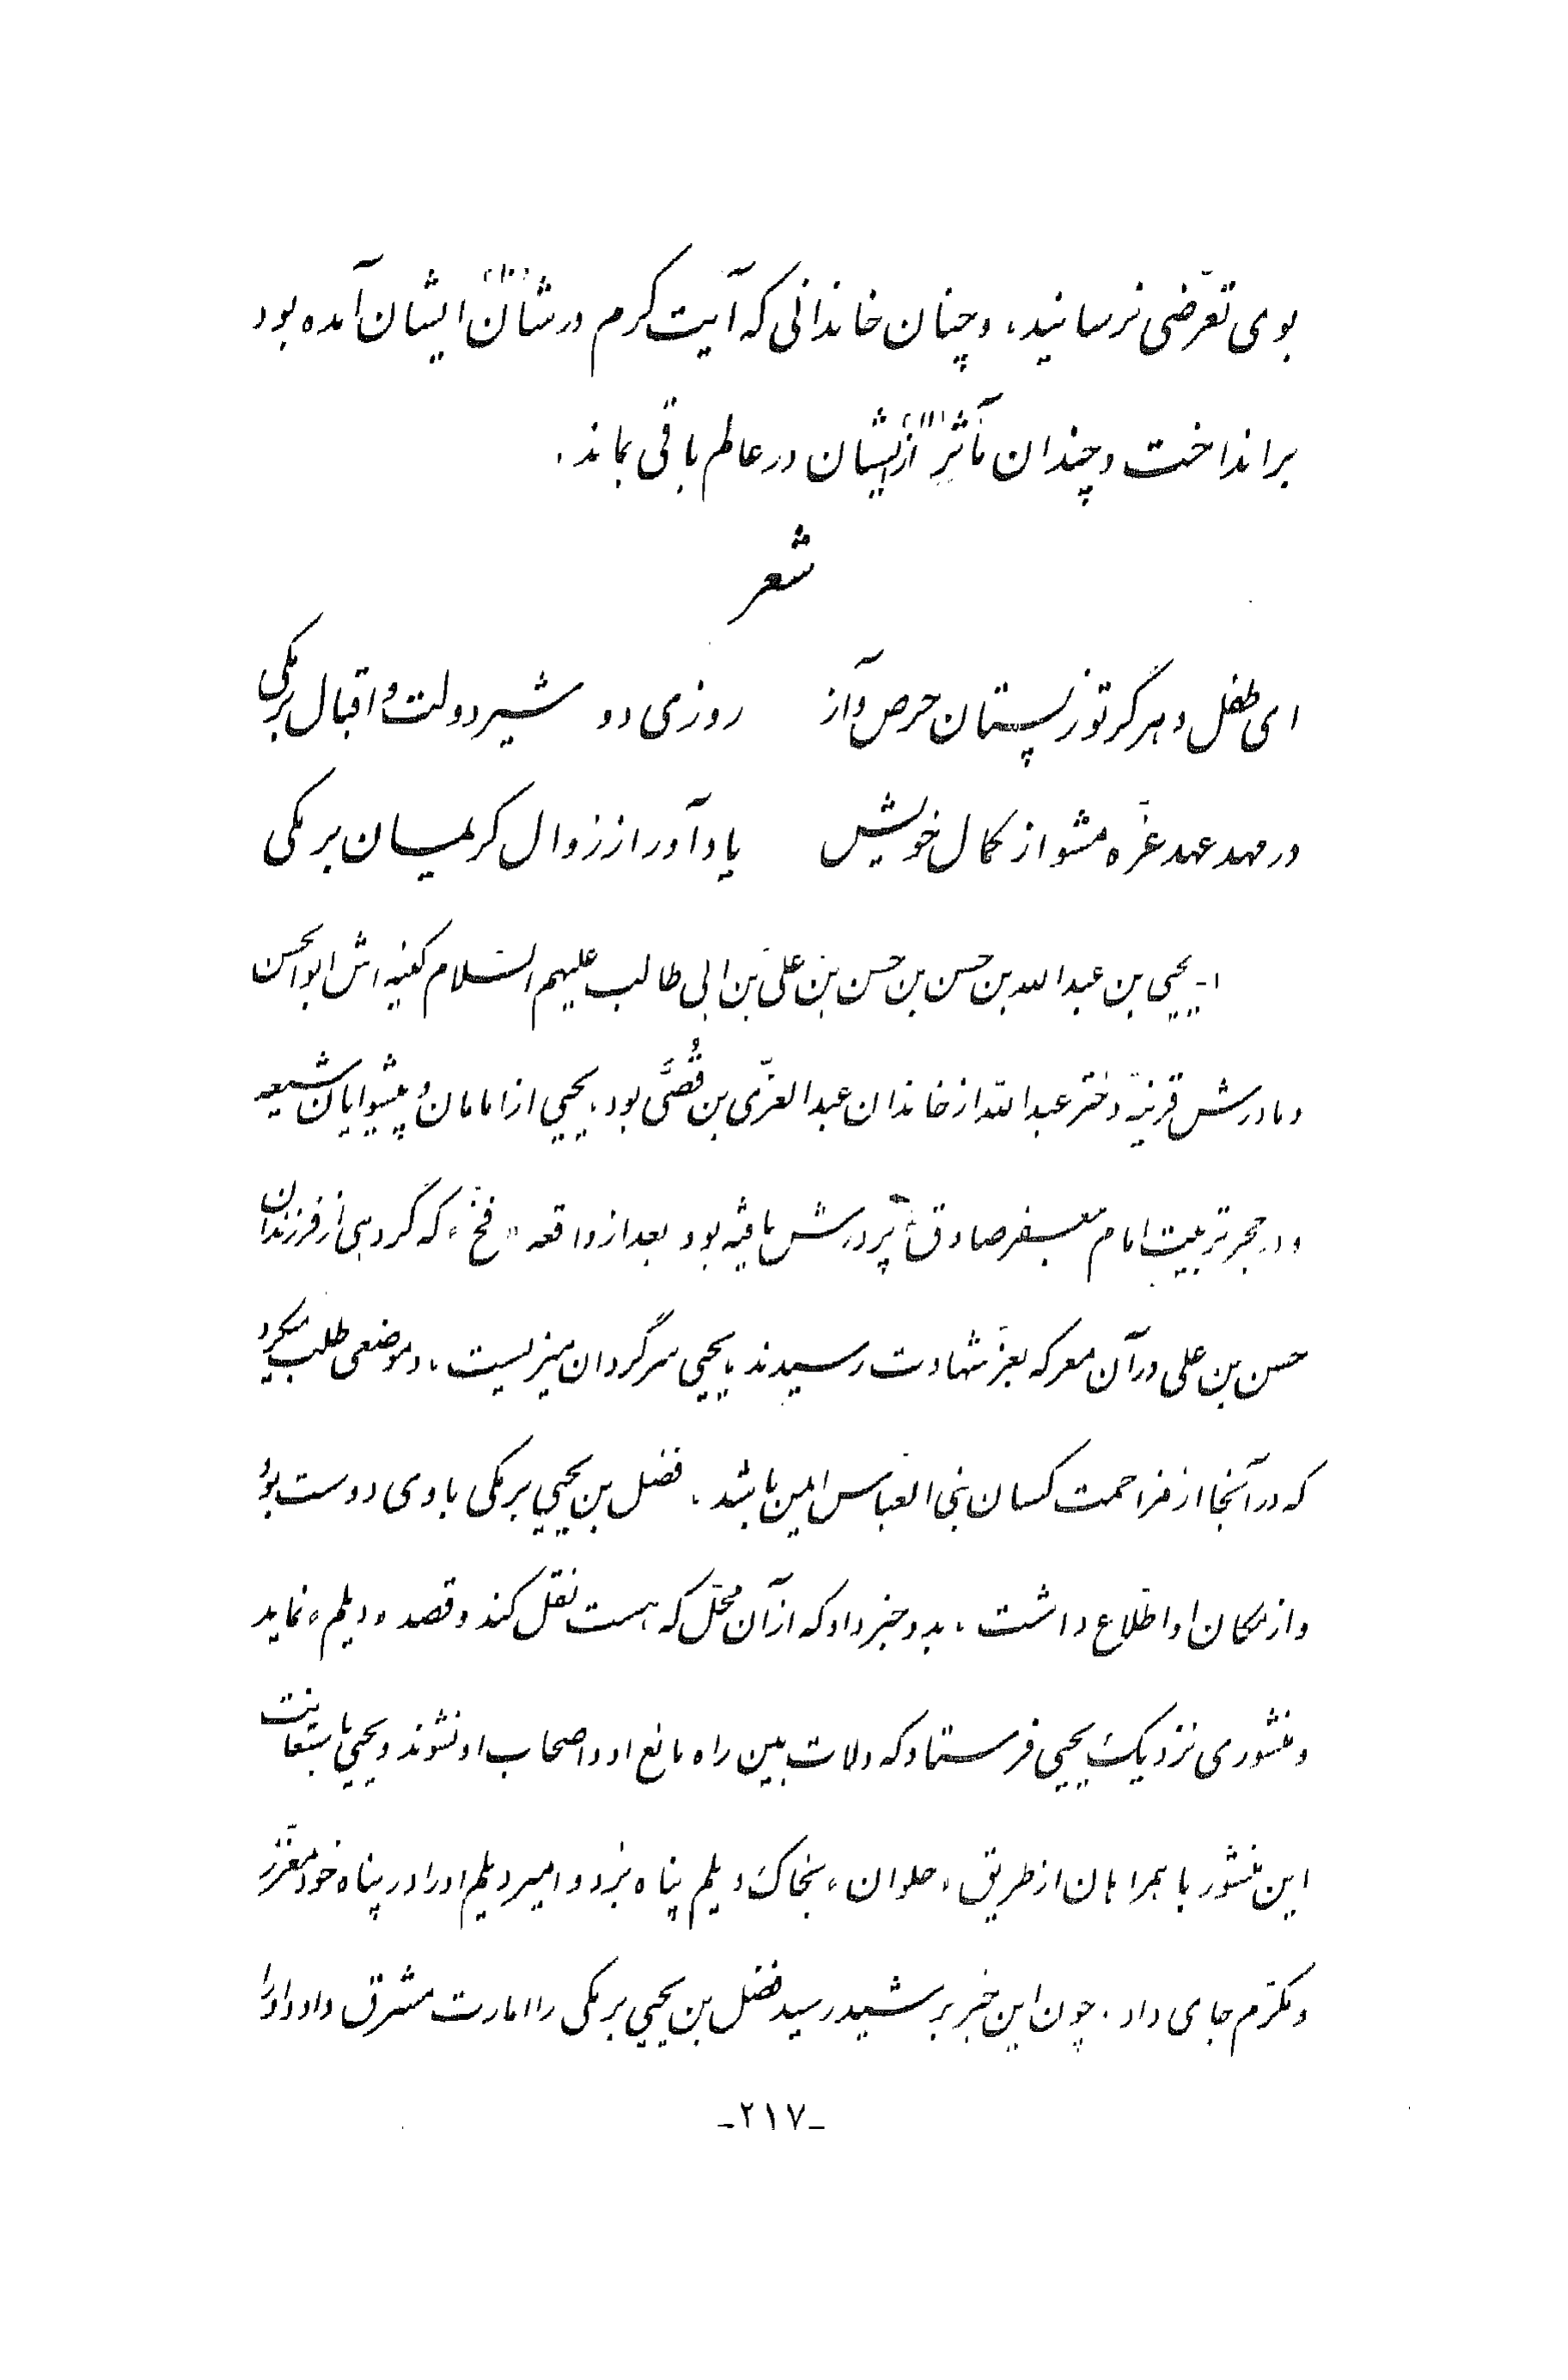 بوی تعرّضی نرسانید، و چنان خاندانی که آیت کرم در شأن ایشان آمده بود
برانداخت و چندان مآثر از ایشان در عالم باقی بماند.
شعر
ای طفل دهر گر تو ز پستان حرص و آز    روزی دو شیر دولت و اقبال برمکی
در مهد عهد غرّه مشو از کمال خویش    یاد آور از زوال کریمان برمکی
۱- یحیی بن عبدالله بن حسن بن حسن بن علی بن ابی طالب علیهم السّلام کنیه اش ابوالحسن
و مادرش قرنیه دختر عبداللّه از خاندان عبدالعزّی بن قُصَّی بود. یحیی از امامان و پیشوایان شیعه
و در حجر تربیت امام جعفر صادق پرورش یافته بود بعد از واقعه «فخّ» که گروهی از فرزندان
حسن بن علی در آن معرکه بعزّ شهادت رسیدند یحیی سرگردان میزیست، و موضعی طلب میکرد
که در آنجا از مزاحمت کسان بنی العبّاس ایمن باشد. فضل بن یحیی برمکی با وی دوست بود
و از مکان او اطّلاع داشت، بدو خبر داد که از آن محلّ که هست نقل کند و قصد «دیلم» نماید
و منشوری نزدیک یحیی فرستاد که ولات بین راه مانع او و اصحاب او نشوند و یحیی باستعانت
این منشور با همراهان از طریق «حلوان» بخاک دیلم پناه برد و امیر دیلم او را در پناه خود معزّز
و مکرّم جای داد. چون این خبر برشید رسید فضل بن یحیی برمکی را امارت مشرق داد و او را
-۲۱۷-